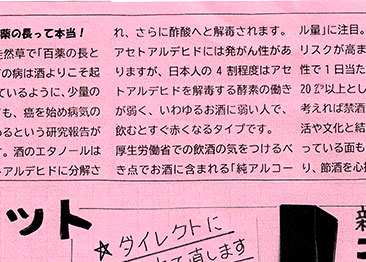 薬の長って本当!
徒然草で「百薬の長と
の病は酒よりこそ起
ているように、少量の
も、癌を始め病気の
るという研究報告が
す。酒のエタノールは
トアルデヒドに分解さ
れ、さらに酢酸へと解毒されます。
アセトアルデヒドには発がん性があ
りますが、日本人の 4 割程度はアセ
トアルデヒドを解毒する酵素の働き
が弱く、いわゆるお酒に弱い人で、
飲むとすぐ赤くなるタイプです。
厚生労働省での飲酒の気をつけるべ
き点でお酒に含まれる「純アルコー
ル量」に注目。
リスクが高ま
性で 1 日当た
20㌘以上とし
考えれば禁酒
活や文化と結
っている面も
り、節酒を心掛
ット
☆ダイレクトに
て直します